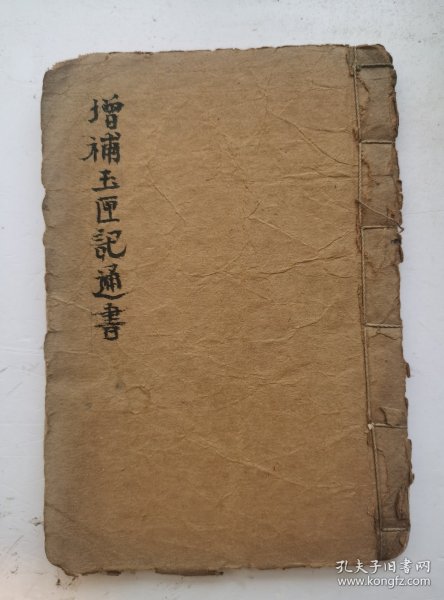 增補玉匣記通書
孔夫子旧书网
www.kongfz.com